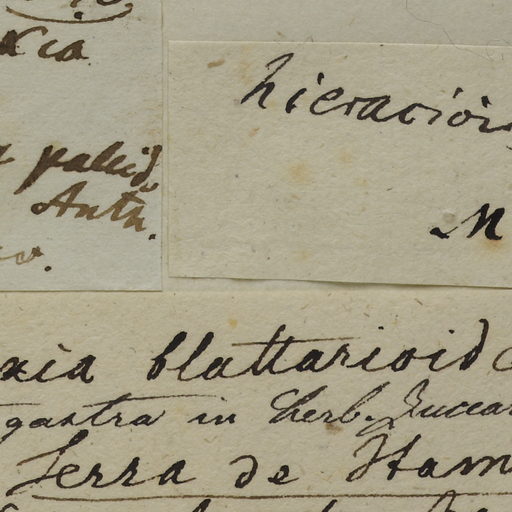 xia
pallid
Anth.
hieracioi
M
xia blattarioid
gastra in Herb. Zuccar
Serra de Itam